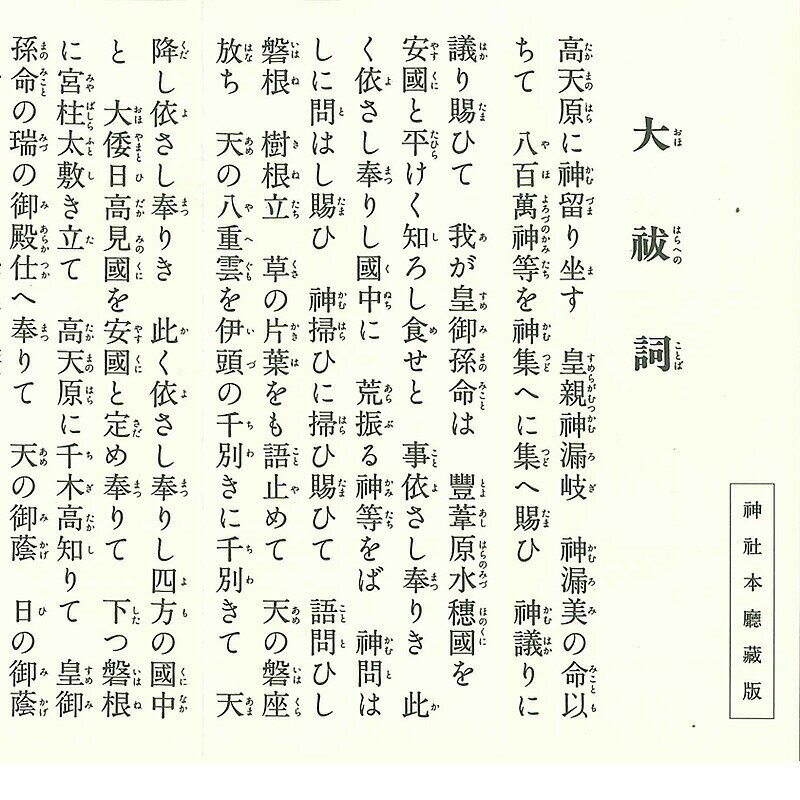 神社本廳藏版
大祓詞
高天原に神留り坐す 皇親神漏岐 神漏美の命以
ちて 八百萬神等を神集へに集へ賜ひ 神議りに
議り賜ひて 我が皇御孫命は 豐葦原水穗國を
安國と平けく知ろし食せと 事依さし奉りき 此
く依さし奉りし國中に 荒振る神等をば 神問は
しに問はし賜ひ 神掃ひに掃ひ賜ひて 語問ひし
磐根 樹根立 草の片葉をも語止めて 天の磐座
放ち 天の八重雲を伊頭の千別きに千別きて 天
降し依さし奉りき 此く依さし奉りし四方の國中
と 大倭日高見國を安國と定め奉りて 下つ磐根
に宮柱太敷き立て 高天原に千木高知りて 皇御
孫命の瑞の御殿仕へ奉りて 天の御蔭 日の御蔭